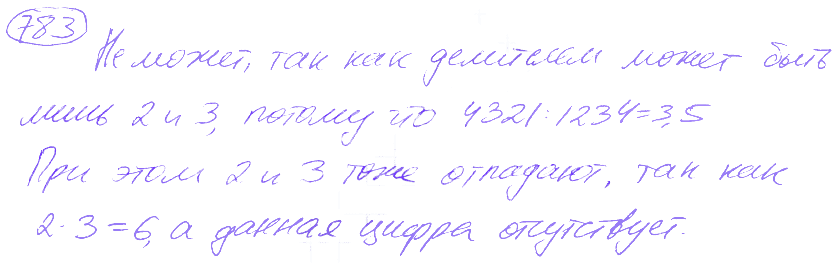 783
Не может, так как делителем может быть
лишь 2 и 3, потому что 4321:1234=3,5
При этом 2 и 3 тоже отпадают, так как
2·3=6, а данная цифра отсутствует.